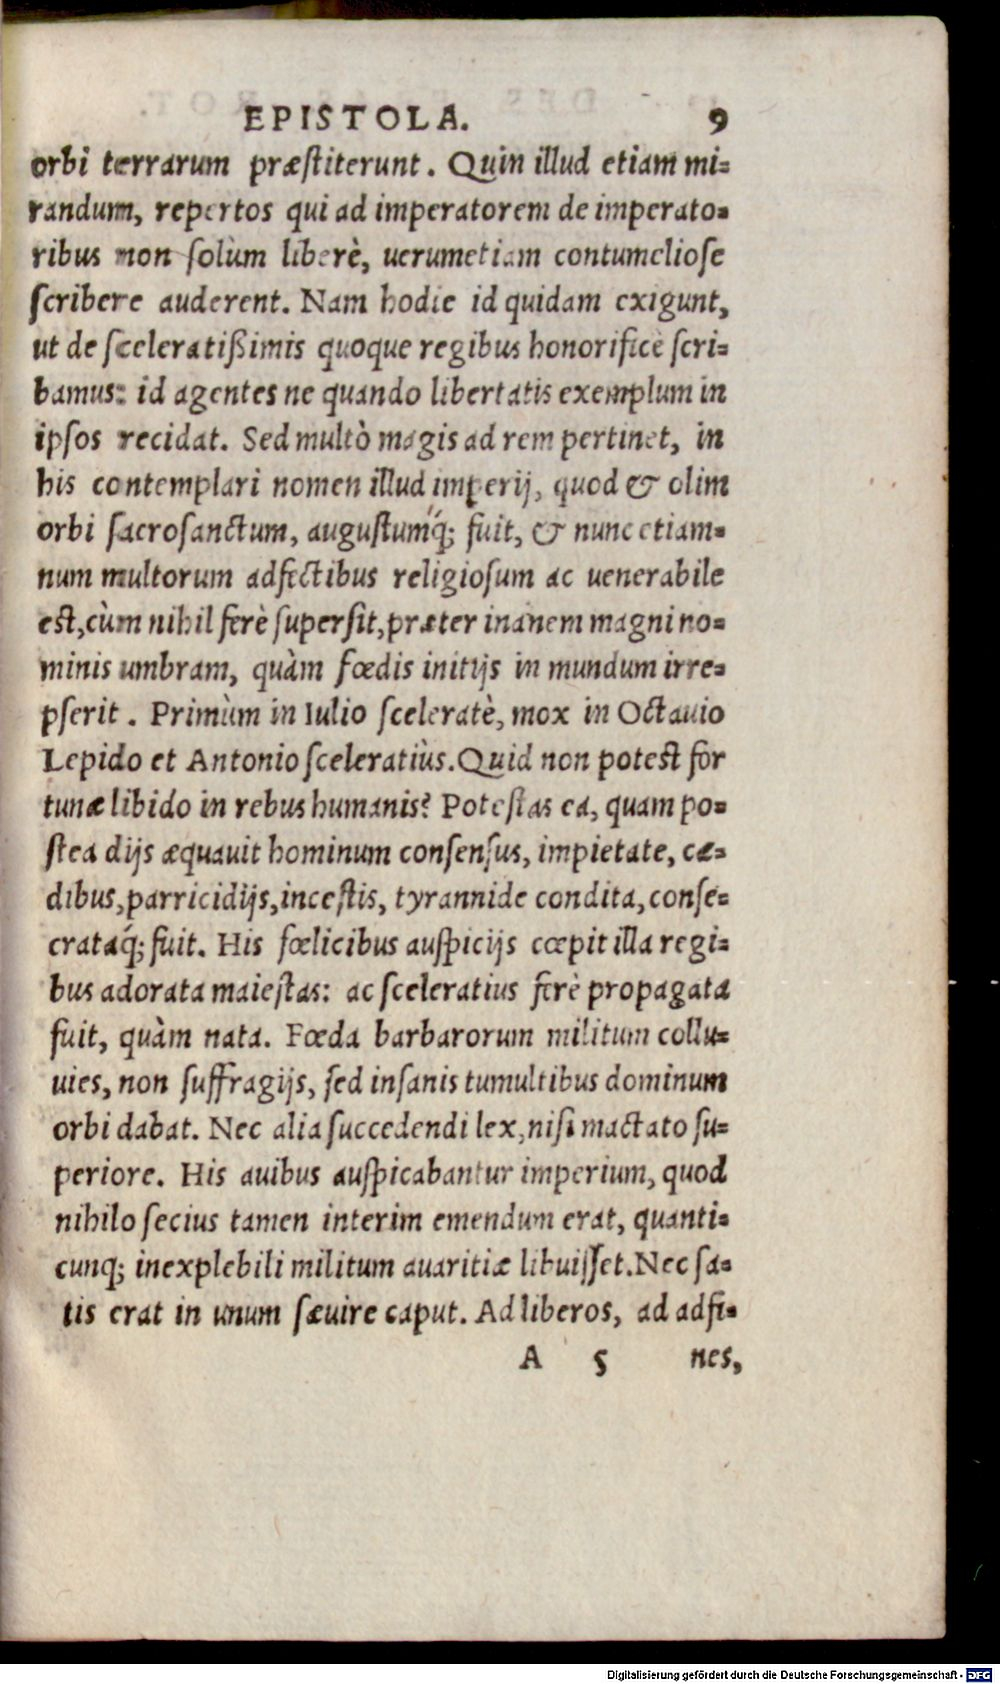 EPISTOLA. 9
orbi terrarum præſtiterunt. Quin illud etiam mi-
randum, repertos qui ad imperatorem de imperato-
ribus non ſolùm liberè, uerumetiam contumelioſe
ſcribere auderent. Nam hodie id quidam exigunt,
ut de ſceleratißimis quoque regibus honorificè ſcri-
bamus: id agentes ne quando libertatis exemplum in
ipſos recidat. Sed multò magis ad rem pertinet, in
his contemplari nomen illud imperij, quod & olim
orbi ſacroſanctum, auguſtumq́; fuit, & nunc etiam-
num multorum adfectibus religioſum ac uenerabile
est, cùm nihil ferè ſuperſit, præter inanem magni no-
minis umbram, quàm fœdis initijs in mundum irre-
pſerit. Primùm in Iulio ſceleratè, mox in Octauio
Lepido et Antonio ſceleratiùs. Quid non potest for
tunæ libido in rebus humanis? Poteſtas ea, quam po-
ſtea dijs æquauit hominum conſenſus, impietate, cæ-
dibus, parricidijs, inceſtis, tyrannide condita, conſe-
crataq́; fuit. His fœlicibus auſpicijs cœpit illa regi-
bus adorata maieſtas: ac ſceleratius ferè propagata
fuit, quàm nata. Fœda barbarorum militum collu-
uies, non ſuffragijs, ſed inſanis tumultibus dominum
orbi dabat. Nec alia ſuccedendi lex, niſi mactato ſu-
periore. His auibus auſpicabantur imperium, quod
nihilo ſecius tamen interim emendum erat, quanti-
cunq; inexplebili militum auaritiæ libuiſſet. Nec ſa-
tis erat in unum ſæuire caput. Ad liberos, ad adfi-
A 5 nes,
Digitalisierung gefördert durch die Deutsche Forschungsgemeinschaft - DFG